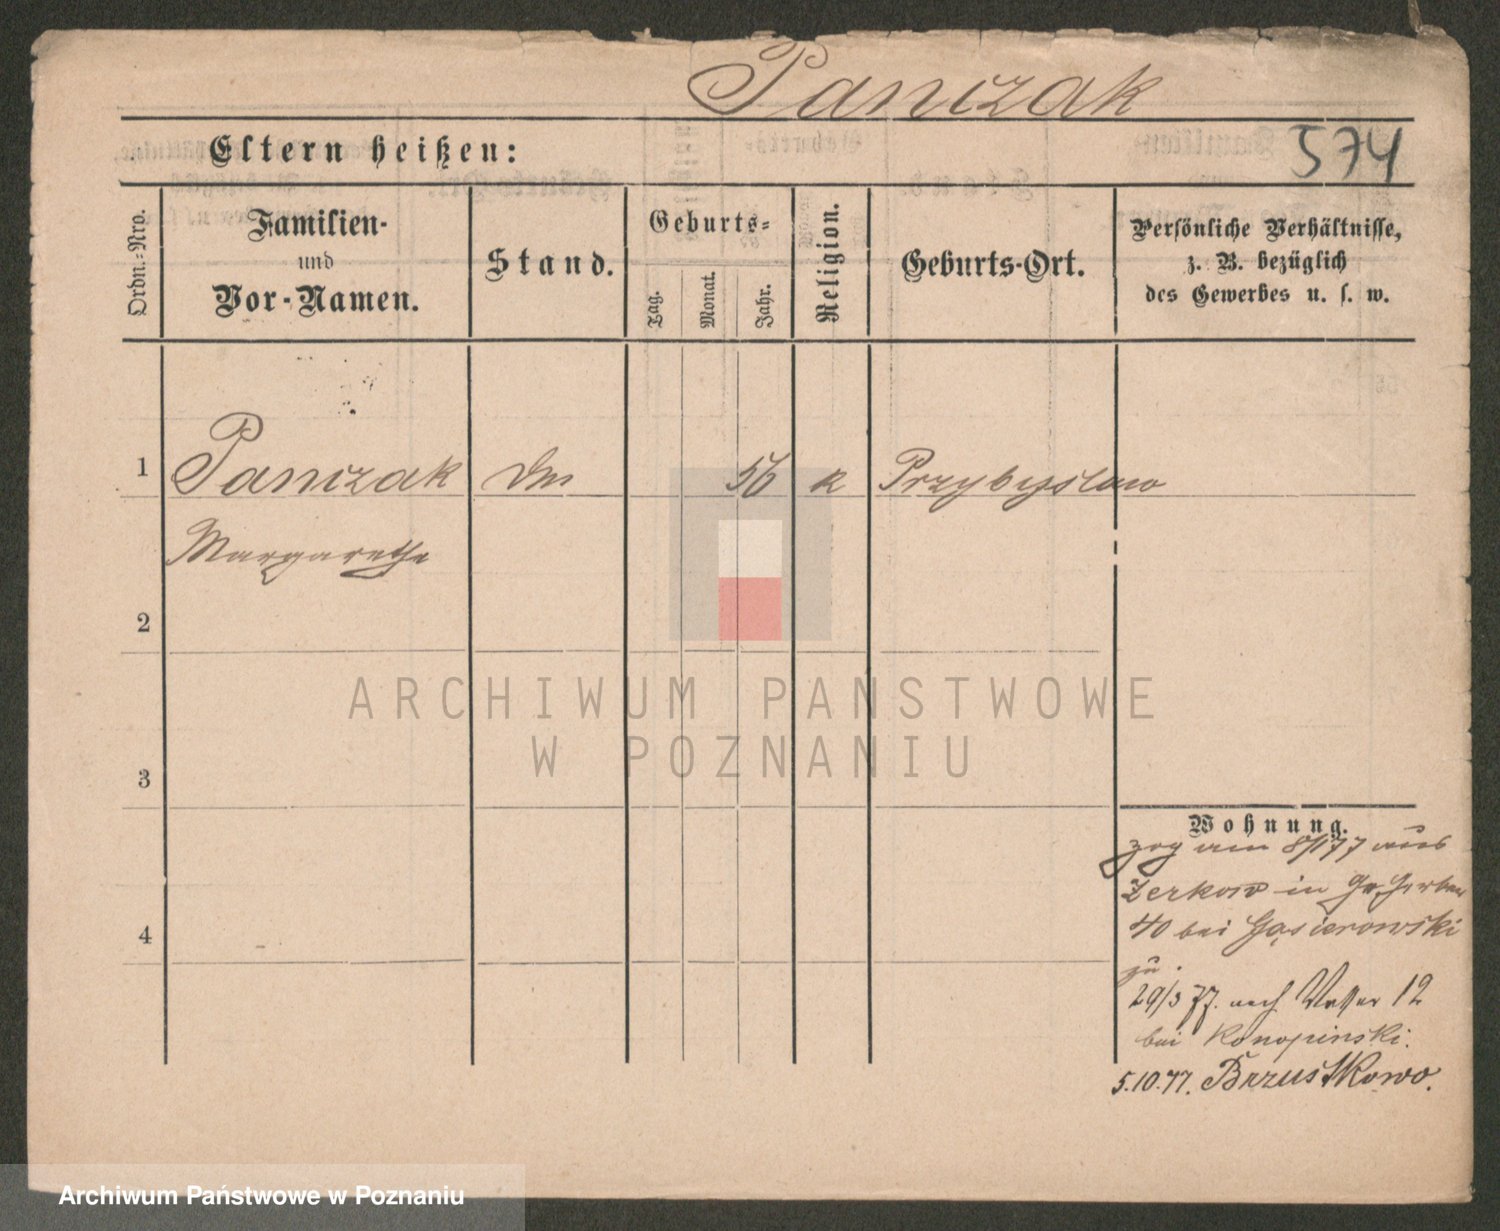 Panczak
Eltern heißen:
574
Ordn.-Nro.
Familien-
und
Vor-Namen.
Stand.
Geburts-
Tag.
Monat.
Jahr.
Religion.
Geburts-Ort.
Persönliche Verhältnisse,
z. B. bezüglich
des Gewerbes u. s. w.
1 Panczak 56 k Przybyslaw
Margarethe
2
3
4
ARCHIWUM PAŃSTWOWE
W POZNANIU
Wohnung.
zog am 8/1 77 aus
Zerkow in Gr. Gerber
40 bei Gąsierowski
zu.
29/3 77. nach Wasser 12
bei Konopinski.
5.10.77. Brzustkowo.
Archiwum Państwowe w Poznaniu